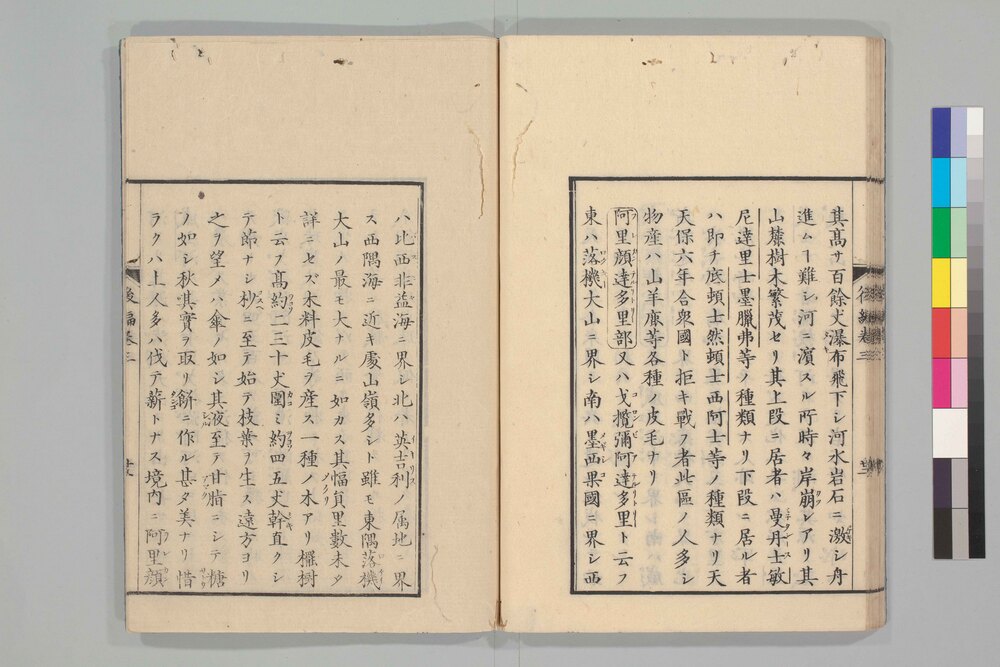 其髙サ百餘丈瀑布飛下シ河水岩石ニ激シ舟
進ムヿ難シ河ニ濱スル所時々岸崩レアリ其
山麓樹木繁茂セリ其上段ニ居者ハ曼丹士敏
尼達里士墨臘弗等ノ種類ナリ下段ニ居ル者
ハ即チ底頓士然頓士西阿士等ノ種類ナリ天
天保六年合衆國ト拒キ戰フ者此區ノ人多シ
物産ハ山羊麻等各種ノ皮毛ナリ
阿里顔達多里部又ハ戈攬彌阿達多里ト云フ
東ハ落機大山ニ界シ南ハ墨西果國ニ界シ西
ハ北西非盗海ニ界シ北ハ英吉利ノ属地ニ界
ス西隅海ニ近キ處山嶺多シト雖モ東隅落機
大山ノ最モ大ナルニ如カス其幅員里數未タ
詳ニセズ木料皮毛ヲ産ス一種ノ木アリ櫂樹
ト云フ髙約二三十丈圍ミ約四五丈幹直クシ
テ節ナシ杪ニ至テ始テ枝葉ヲ生ス遠方ヨリ
之ヲ望メハ傘ノ如シ其液至テ甘脂ニシテ糖
ノ如シ秋其實ヲ取リ餅ニ作ル甚タ美ナリ惜
ラクハ土人多ハ伐テ薪トナス境内ニ阿里顔
後編巻三